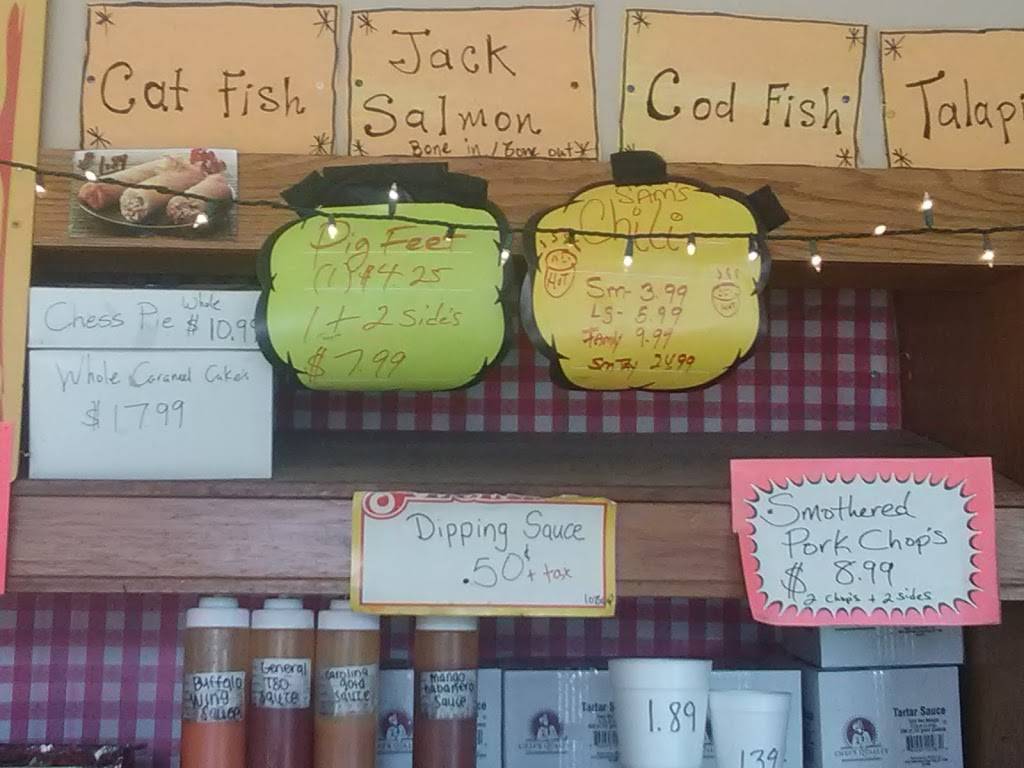 Cat Fish
Jack
Salmon
Bone in / Bone out
Cod Fish
Talapi
$1.89
Pig Feet
(1) $4.25
1 + 2 Side's
$7.99
SAM'S
Chili
HOT
Sm - 3.99
Lg - 5.99
Family 9.99
24.99
Chess Pie Whole $10.99
Whole Caramel Cakes
$17.99
Dipping Sauce
.50¢ + tax
Smothered
Pork Chop's
$8.99
2 chop's + 2 sides
Buffalo
Wing
Sauce
General
TSO
Sauce
Carolina
Gold
Sauce
Mango
Habanero
Sauce
1.89
1.39
Tartar Sauce
Tartar Sauce